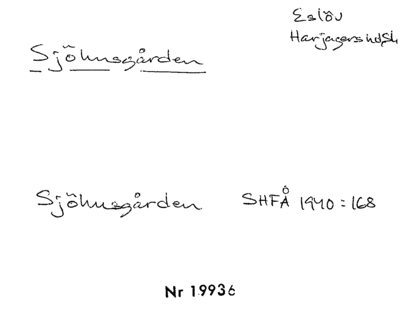 Eslöv
Harjagers hd, Sk.
Sjöhusgården
Sjöhusgården SHFÅ 1940:168
Nr 19936